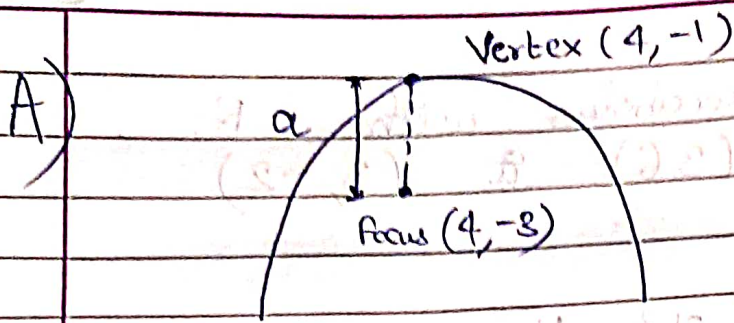 Vertex (4,-1)
A)
a
focus (4,-3)